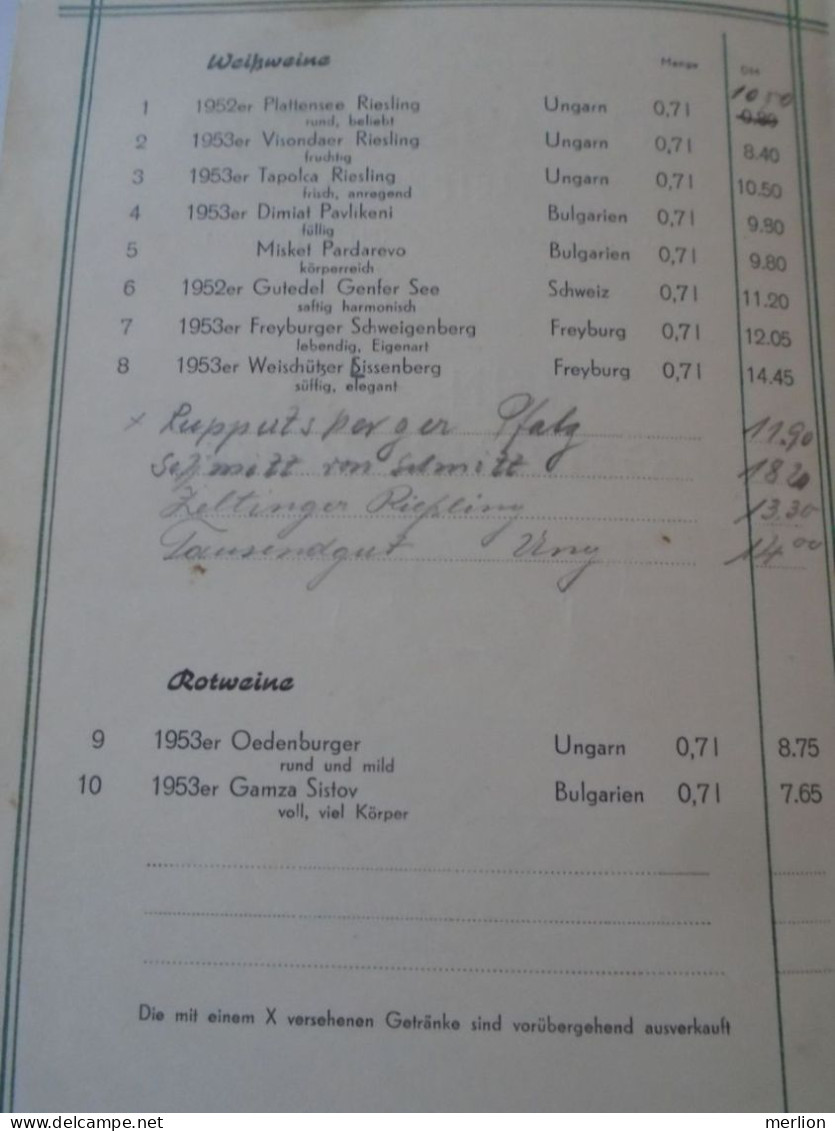 Weißweine Menge
1 1952er Plattensee Riesling Ungarn 0,7 l 10 50 9.80
rund, beliebt
2 1953er Visondaer Riesling Ungarn 0,7 l 8.40
fruchtig
3 1953er Tapolca Riesling Ungarn 0,7 l 10.50
frisch, anregend
4 1953er Dimiat Pavlikeni Bulgarien 0,7 l 9.80
füllig
5 Misket Pardarevo Bulgarien 0,7 l 9.80
körperreich
6 1952er Gutedel Genfer See Schweiz 0,7 l 11.20
saftig harmonisch
7 1953er Freyburger Schweigenberg Freyburg 0,7 l 12.05
lebendig, Eigenart
8 1953er Weischützer Sissenberg Freyburg 0,7 l 14.45
süffig, elegant
x Ruppertsberger Pfalz 11.90
Schmitt von Schmitt 18 20
Zeltinger Rießling 13.30
Tausendgut Ung 14 00
Rotweine
9 1953er Oedenburger Ungarn 0,7 l 8.75
rund und mild
10 1953er Gamza Sistov Bulgarien 0,7 l 7.65
voll, viel Körper
Die mit einem X versehenen Getränke sind vorübergehend ausverkauft
www.delcampe.net merlion